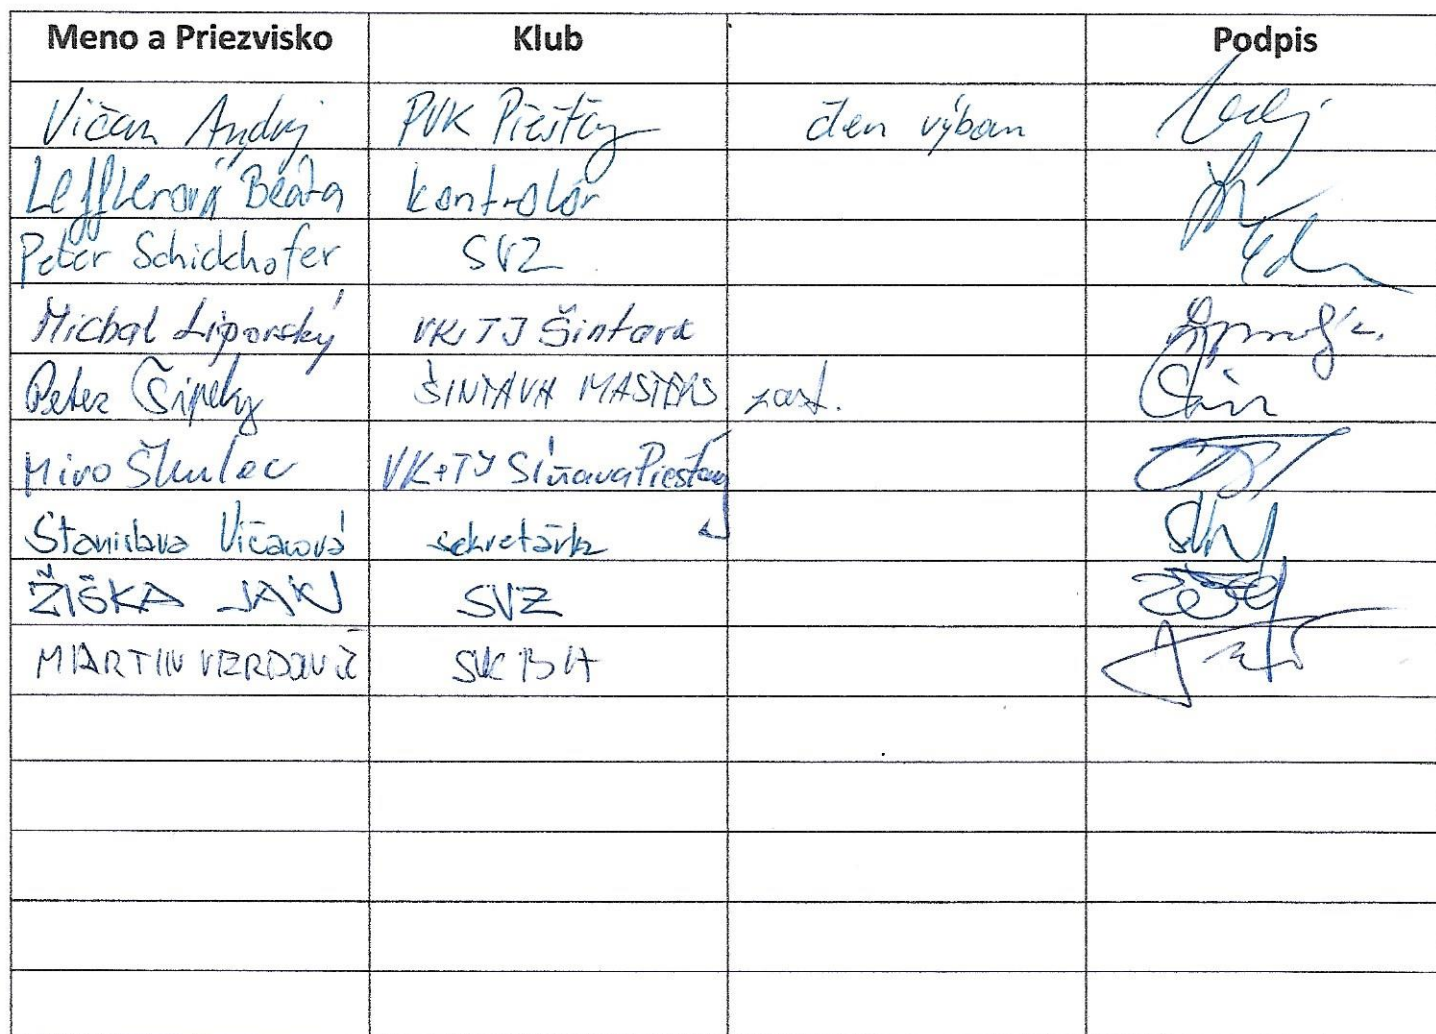 Meno a Priezvisko Klub Podpis
Vičan Andrej PVK Piešťany člen výboru
Lefflerová Beáta kontrolór
Peter Schickhofer SVZ
Michal Liporský VK TJ Šintava
Peter Šipeky ŠINTAVA MASTERS zast.
Miro Škulec VK+TJ Sĺňava Piešťany
Stanislava Vičanová sekretárka
ŽIŠKA JAN SVZ
MARTIN SVK BA